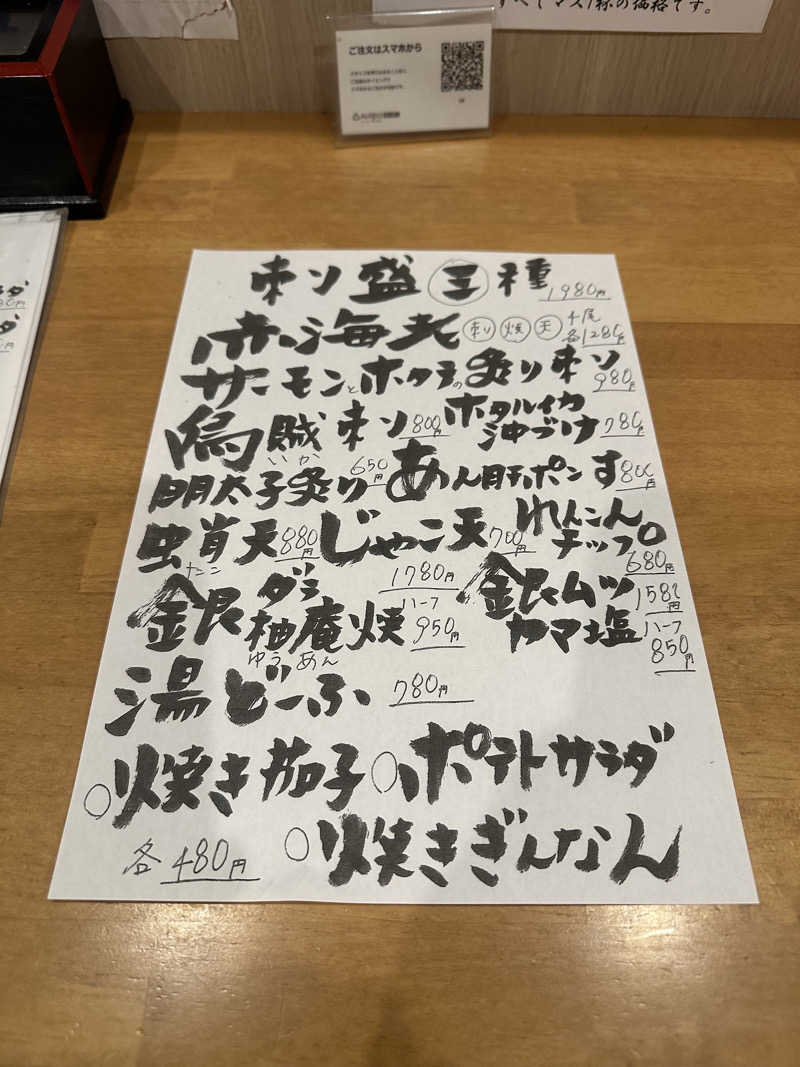 すべてマス1杯の価格です。
ご注文はスマホから
刺し盛 三 種 1980円
赤海老 刺 焼 天 4尾 各1280円
サーモンとホタテの炙り刺し 980円
烏賊刺し 800円 ホタルイカ沖づけ 780円
いか
明太子炙り 650円 あん肝ポン酢 800円
蛸天 880円 じゃこ天 700円 れんこんチップ 680円
銀ダラ柚庵焼 1780円 ハーフ 950円
ゆうあん
銀ムツカマ塩 1580円 ハーフ 850円
湯どーふ 780円
○焼き茄子 ○ポテトサラダ
各480円 ○焼きぎんなん